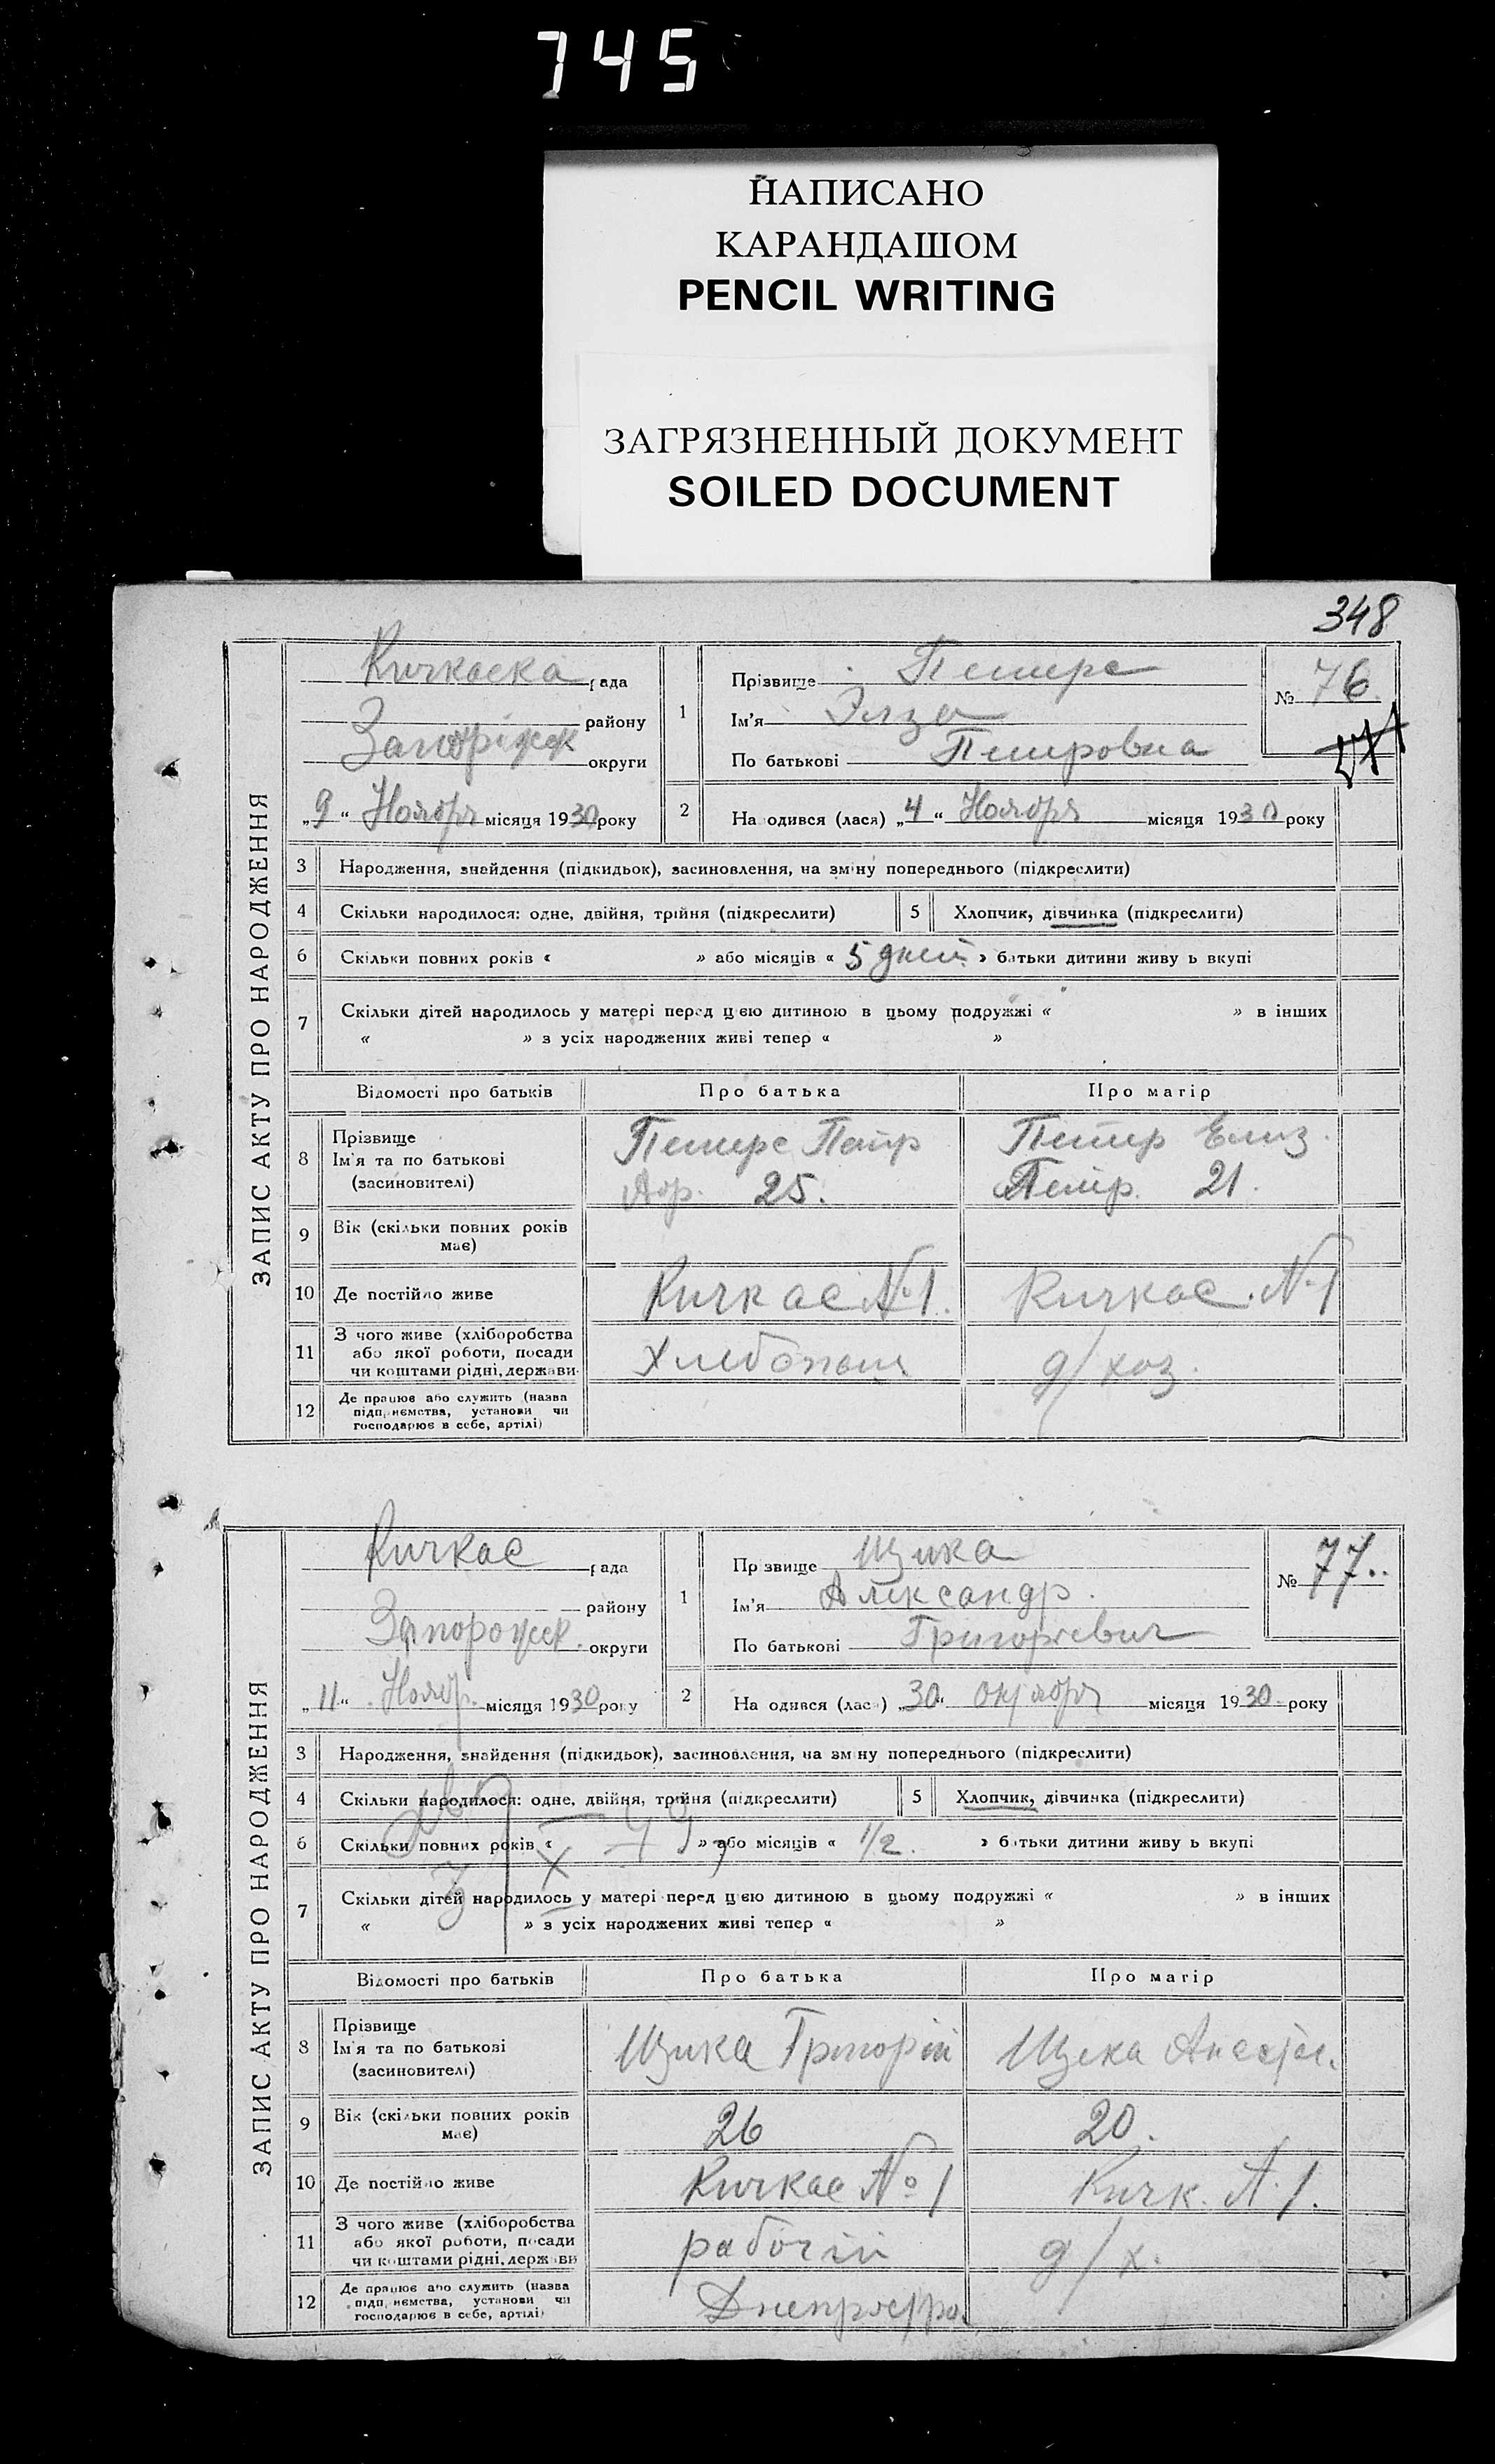 745
НАПИСАНО
КАРАНДАШОМ
PENCIL WRITING
ЗАГРЯЗНЕННЫЙ ДОКУМЕНТ
SOILED DOCUMENT
348
ЗАПИС АКТУ ПРО НАРОДЖЕННЯ
Кичкаска рада
району
Запоріжск округи
„9“ Ноября місяця 1930 року
1 Прізвище Петерс
Ім'я Элза
По батькові Петровна
№ 76
2 Народився (лася) „4“ Ноября місяця 1930 року
3 Народження, знайдення (підкидьок), засиновлення, на зміну попереднього (підкреслити)
4 Скільки народилося: одне, двійня, трійня (підкреслити) 5 Хлопчик, дівчинка (підкреслити)
6 Скільки повних років « » або місяців « 5 дней » батьки дитини живуть вкупі
7 Скільки дітей народилось у матері перед цією дитиною в цьому подружжі « » в інших
« » з усіх народжених живі тепер « »
Відомості про батьків Про батька Про матір
8 Прізвище
Ім'я та по батькові
(засиновителі)
Петерс Петр
25.
Петер Елиз.
Петр. 21.
9 Вік (скільки повних років
має)
10 Де постійно живе Кичкас №1. Кичкас. №1
11 З чого живе (хліборобства
або якої роботи, посади
чи коштами рідні, держави.
Хлебопаш. д/хоз.
12 Де працює або служить (назва
підприємства, установи чи
господарює в себе, артілі)
ЗАПИС АКТУ ПРО НАРОДЖЕННЯ
Кичкас рада
району
Запорожск. округи
„11“ Ноябр. місяця 1930 року
1 Прізвище Щика
Ім'я Александр.
По батькові Григорьевич
№ 77..
2 Народився (лася) „30“ Октября місяця 1930 року
3 Народження, знайдення (підкидьок), засиновлення, на зміну попереднього (підкреслити)
4 Скільки народилося: одне, двійня, трійня (підкреслити) 5 Хлопчик, дівчинка (підкреслити)
6 Скільки повних років « » або місяців « 1/2. » батьки дитини живуть вкупі
7 Скільки дітей народилось у матері перед цією дитиною в цьому подружжі « » в інших
« » з усіх народжених живі тепер « »
Відомості про батьків Про батька Про матір
8 Прізвище
Ім'я та по батькові
(засиновителі)
Щика Григорій Щека Анастас.
9 Вік (скільки повних років
має)
26 20.
10 Де постійно живе Кичкас №1 Кичк. №1.
11 З чого живе (хліборобства
або якої роботи, посади
чи коштами рідні, держави
рабочій д/х.
12 Де працює або служить (назва
підприємства, установи чи
господарює в себе, артілі)
Днепрострой